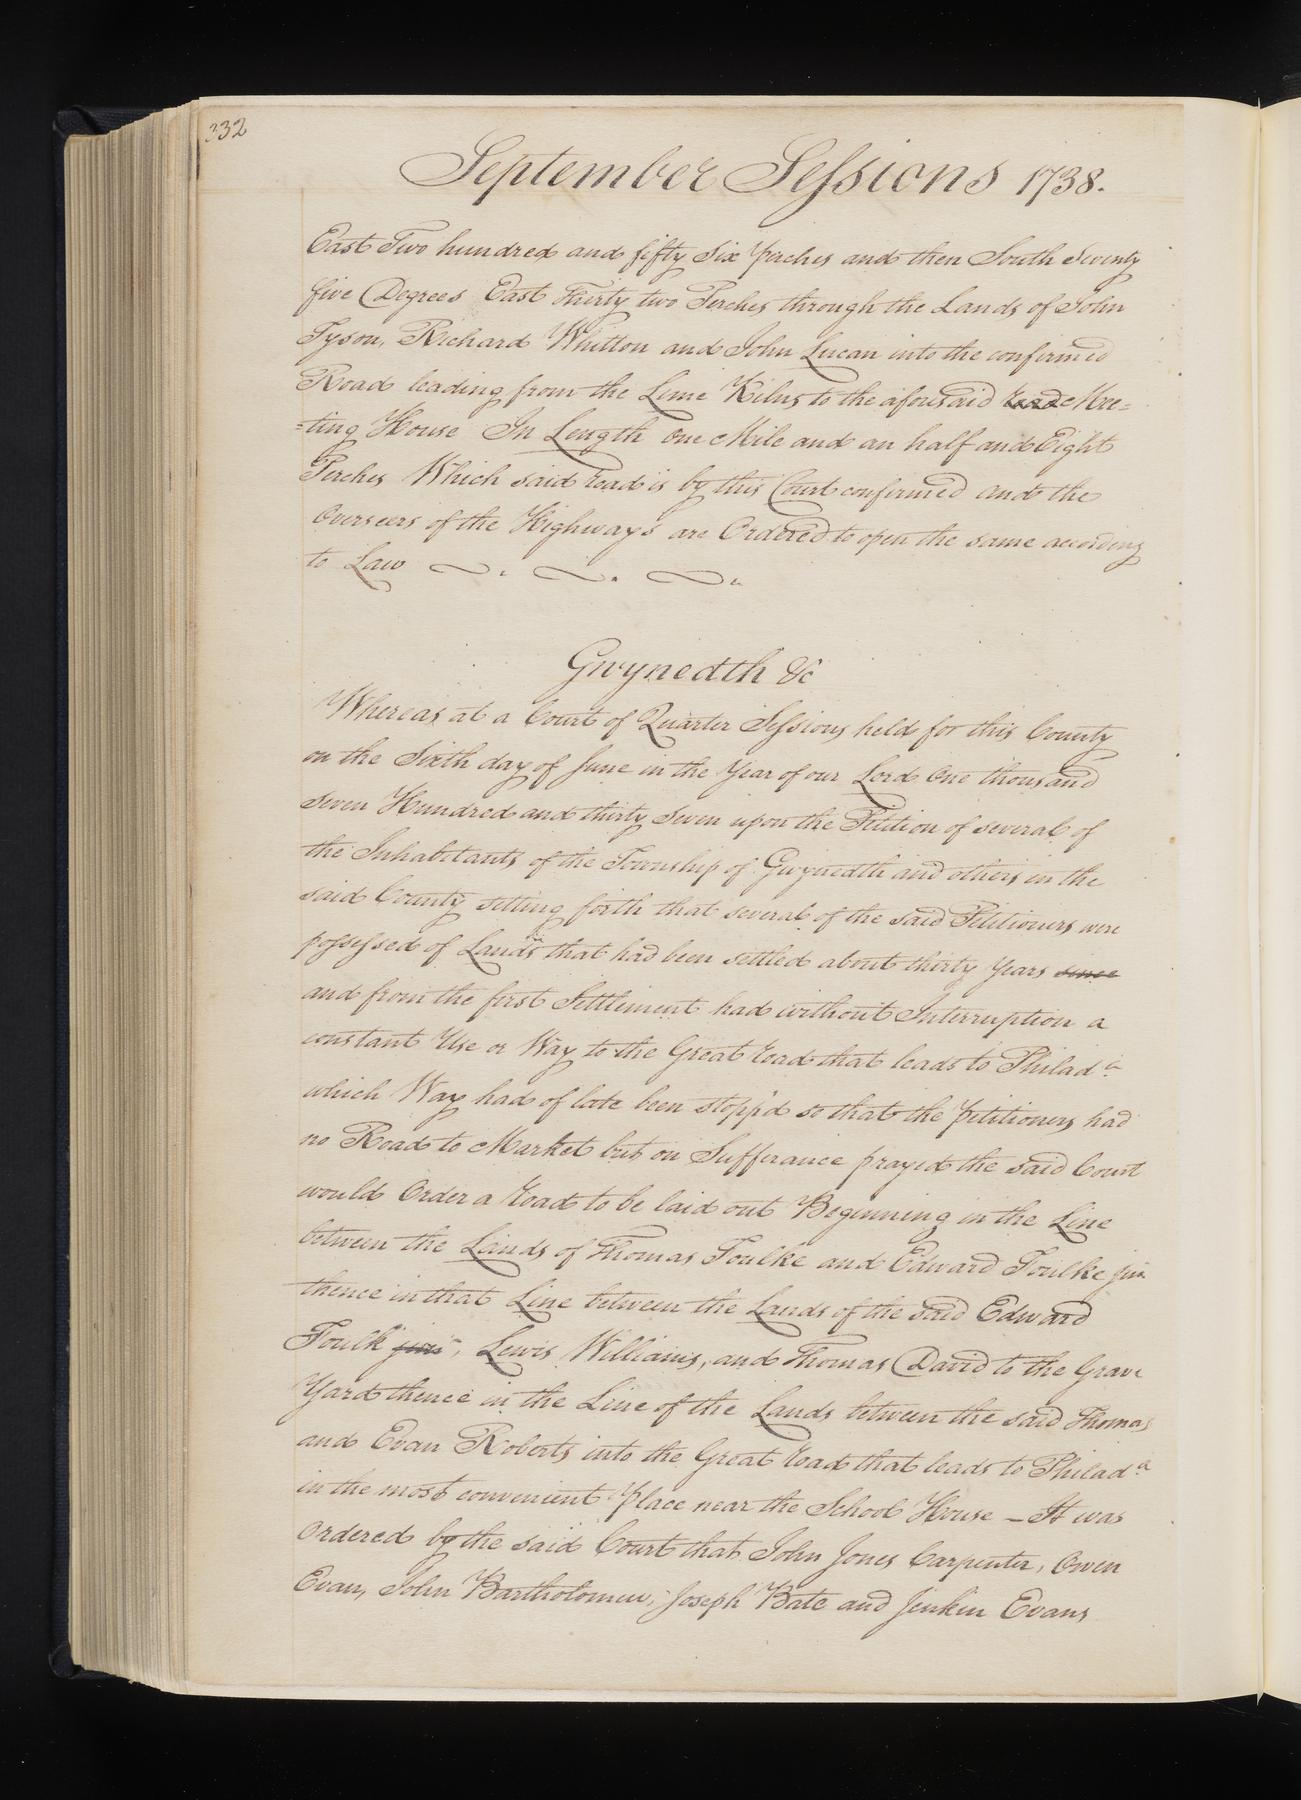 332
September Sessions 1738.
East Two hundred and fifty six perches and then South Seventy
five Degrees East Thirty two Perches through the Lands of John
Tyson, Richard Whitton and John Lucan into the confirmed
Road leading from the Lime Kilns to the aforesaid Road Mee=
=ting House In Length One Mile and an half and Eight
Perches Which said road is by this Court confirmed and the
Overseers of the Highways are Ordered to open the same according
to Law
Gwynedth &c
Whereas at a Court of Quarter Sessions held for this County
on the Sixth day of June in the Year of our Lord One thousand
seven Hundred and thirty seven upon the Petition of several of
the Inhabitants of the Township of Gwynedth and others in the
said County setting forth that several of the said Petitioners were
possessed of Lands that had been settled about thirty Years since
and from the first Settlement had without Interruption a
constant Use or Way to the Great road that leads to Philada
which Way had of late been stopp'd so that the petitioners had
no Road to Market but on Sufferance prayed the said Court
would Order a road to be laid out Beginning in the Line
between the Lands of Thomas Foulke and Edward Foulke jun
thence in that Line between the Lands of the said Edward
Foulk junr, Lewis Williams, and Thomas David to the Grave
Yard thence in the Line of the Lands between the said Thomas
and Evan Roberts into the Great road that leads to Philada
in the most convenient place near the School House – It was
Ordered by the said Court that John Jones Carpenter, Owen
Evan, John Bartholomew, Joseph Bate and Jenkin Evans